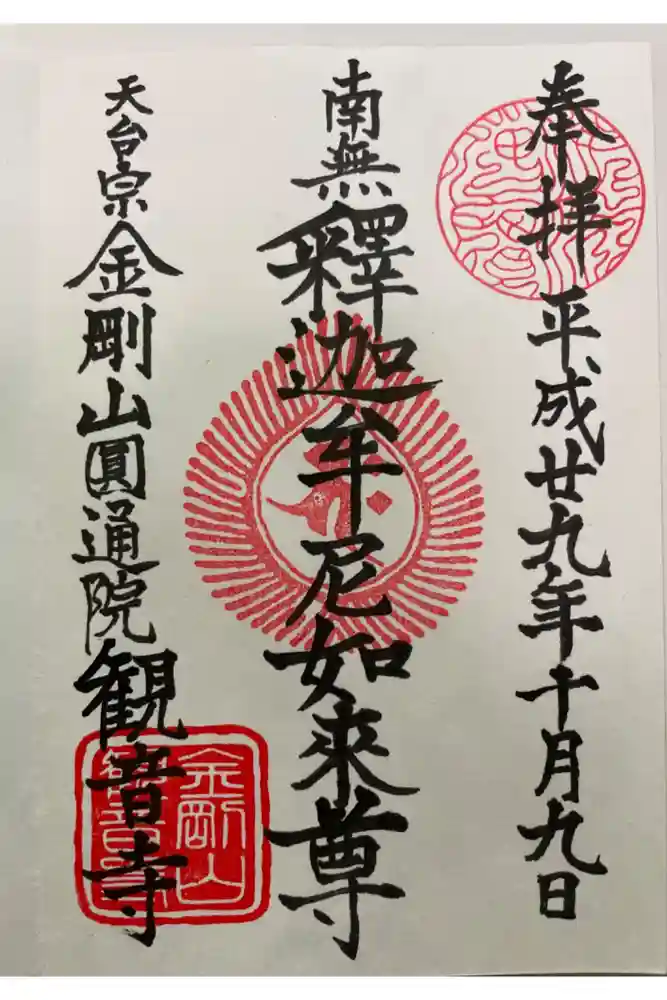 奉拝 平成廿九年十月九日
南無釋迦牟尼如來尊
天台宗 金剛山圓通院 観音寺
金剛山
観音寺